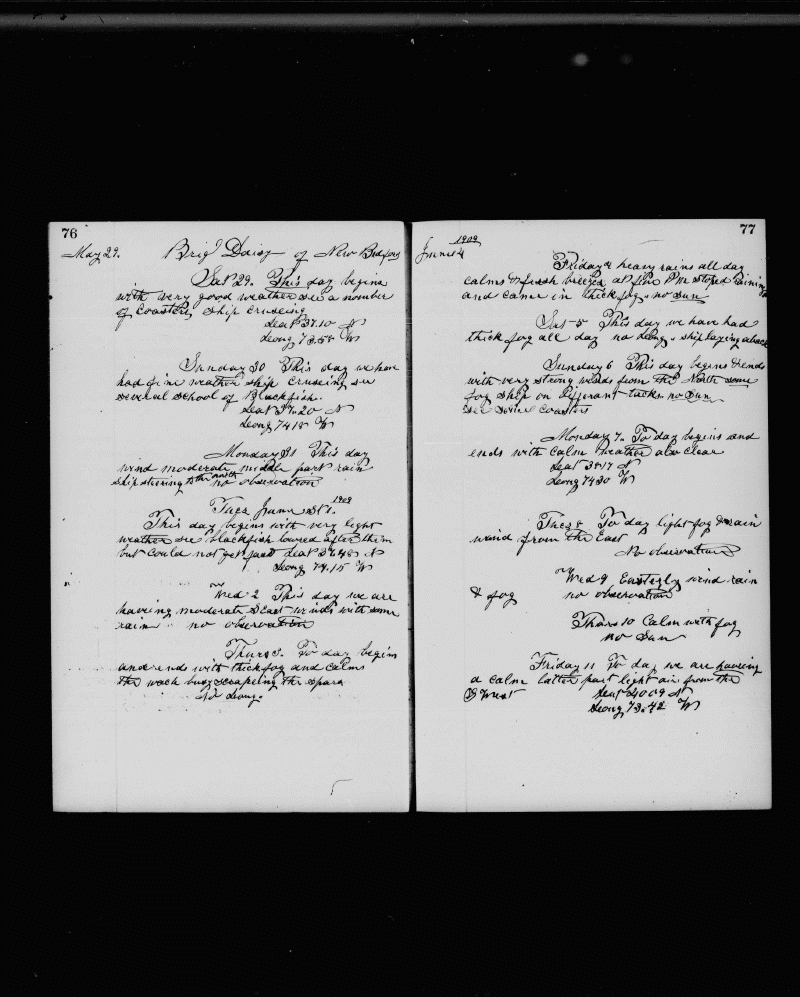 76
May 29. Brig Daisy of New Bedford
Sat 29. This day begins
with very good weather see a number
of Coasters ship cruseing
Leat 37.10 N
Leong 73.58 W
Sunday 30 This day we have
had fine weather ship cruseing see
several school of Blackfish.
Leat 37.20 N
Leong 74 18 W
Monday 31 This day
wind moderate middle part rain
ship steering to the north no observation
Tues June 1st. 1909
This day begins with very light
weather see blackfish lowred after them
but could not get fast Leat 37.48 N
Leong 74.15 W
Wed 2 This day we are
having moderate S East winds with some
rain no observation
Thurs 3. To day begins
and ends with thick fog and calms
the wach busy scrapeing the spars
No Leong.
77
1909
June 4
Friday 4 heavy rains all day
calms & fresh breezes at five PM stoped raining
and came in thick fog. no sun
Sat 5 This day we have had
thick fog all day no Leong. ship laying aback
Sunday 6 This day begins & ends
with very strong winds from the North some
fog ship on differant tacks no sun
see some coasters
Monday 7. To day begins and
ends with calm weather also clear
Leat 38 17 N
Leong 74 30 W
Tues 8 To day light fog & rain
wind from the East
No observation
Wed 9 Easterly wind rain
& fog no observation
Thurs 10 Calm with fog
no sun
Friday 11 To day we are having
a calm latter part light air from the
S West Leat 40 09 N
Leong 73.42 W